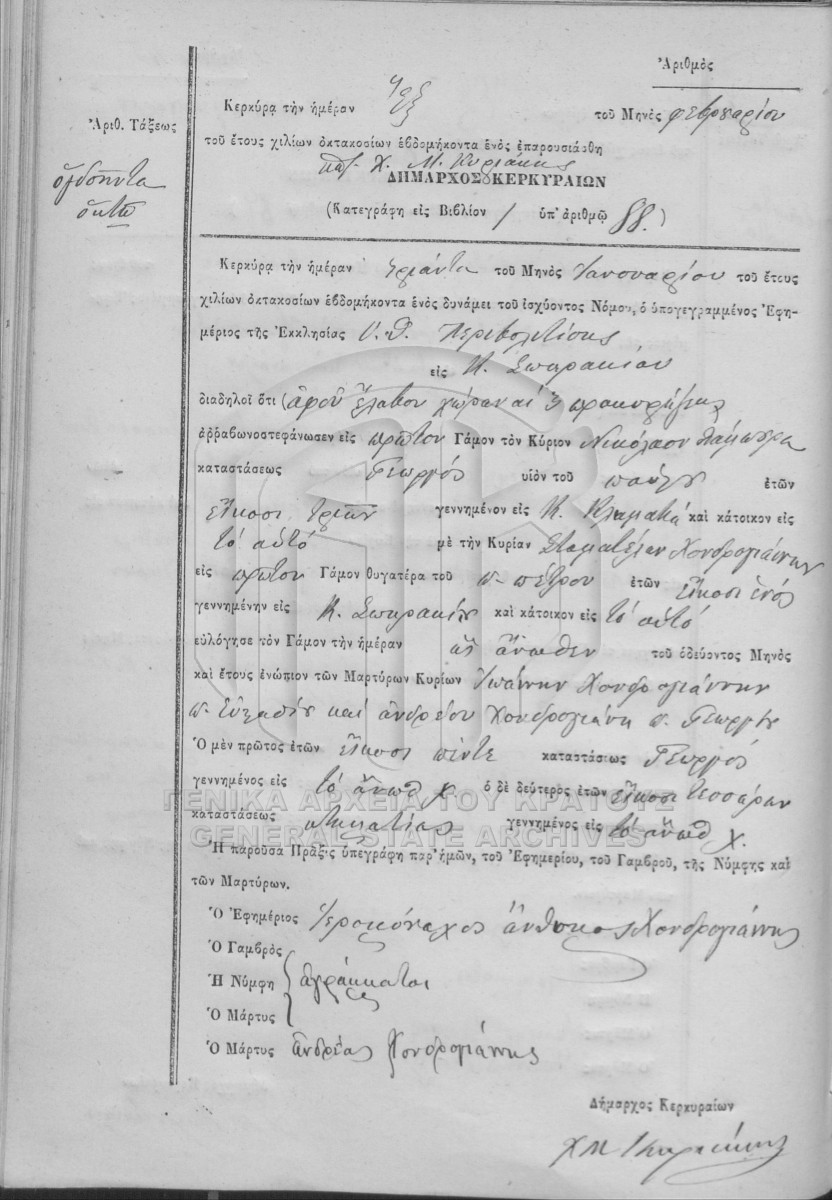 Ἀριθμὸς
Κερκύρᾳ τὴν ἡμέραν τοῦ Μηνὸς φεβρουαρίου
Ἀριθ. Τάξεως
τοῦ ἔτους χιλίων ὀκτακοσίων ἑβδομήκοντα ἑνὸς ἐπαρουσιάσθη
ὀγδοῆντα
ὀκτὼ
ΔΗΜΑΡΧΟΣ ΚΕΡΚΥΡΑΙΩΝ
(Κατεγράφη εἰς Βιβλίον 1 ὑπ' ἀριθμῷ 88.)
Κερκύρᾳ τὴν ἡμέραν τριάντα τοῦ Μηνὸς Ἰανουαρίου τοῦ ἔτους
χιλίων ὀκτακοσίων ἑβδομήκοντα ἑνὸς δυνάμει τοῦ ἰσχύοντος Νόμου, ὁ ὑπογεγραμμένος Ἐφη-
μέριος τῆς Ἐκκλησίας Υ. Θ. Περιβολιτίσης
εἰς Χ. Σωκρακίου
διαδηλοῖ ὅτι (ἀφοῦ ἔλαβον χώραν αἱ 3 προκηρύξεις
ἀῤῥαβωνοστεφάνωσεν εἰς πρῶτον Γάμον τὸν Κύριον Νικόλαον Λάμπουρα
καταστάσεως Γεωργός υἱὸν τοῦ ποτὲ ἐτῶν
εἴκοσι τριῶν γεννημένον εἰς Χ. Κλαματιά καὶ κάτοικον εἰς
τὸ αὐτό μὲ τὴν Κυρίαν Σταματέλαν Χονδρογιάννη
εἰς πρῶτον Γάμον θυγατέρα τοῦ π. Πέτρου ἐτῶν εἴκοσι ἑνός
γεννημένην εἰς Χ. Σωκρακίου καὶ κάτοικον εἰς τὸ αὐτό
εὐλόγησε τὸν Γάμον τὴν ἡμέραν ὡς ἄνωθεν τοῦ ὁδεύοντος Μηνὸς
καὶ ἔτους ἐνώπιον τῶν Μαρτύρων Κυρίων Ἰωάννην Χονδρογιάννην
π. Εὐσταθίου καὶ ἀνδρέου Χονδρογιάνη π. Γεωργίου
Ὁ μὲν πρῶτος ἐτῶν εἴκοσι πέντε καταστάσεως Γεωργός
γεννημένος εἰς τὸ ἄνωθ χ. ὁ δὲ δεύτερος ἐτῶν εἴκοσι τεσσάρων
καταστάσεως κτηματίας γεννημένος εἰς τὸ ἄνωθ χ.
ΓΕΝΙΚΑ ΑΡΧΕΙΑ ΤΟΥ ΚΡΑΤΟΥΣ
GENERAL STATE ARCHIVES
Ἡ παροῦσα Πρᾶξις ὑπεγράφη παρ' ἡμῶν, τοῦ Ἐφημερίου, τοῦ Γαμβροῦ, τῆς Νύμφης καὶ
τῶν Μαρτύρων.
Ὁ Ἐφημέριος Ἱερομόναχος ἄνθιμος Χονδρογιάννης
Ὁ Γαμβρὸς
Ἡ Νύμφη ἀγράμματοι
Ὁ Μάρτυς
Ὁ Μάρτυς ἀνδρέας Χονδρογιάννης
Δήμαρχος Κερκυραίων